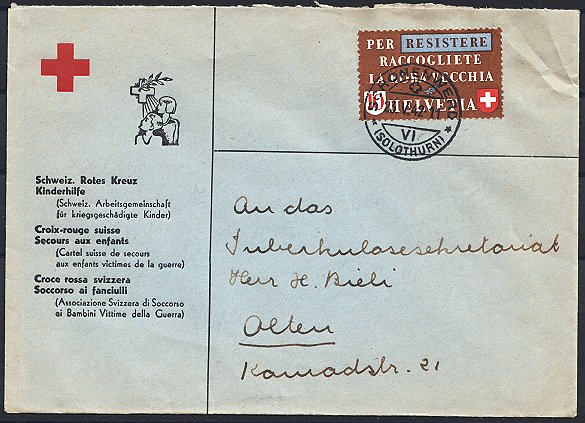 Schweiz. Rotes Kreuz
Kinderhilfe
(Schweiz. Arbeitsgemeinschaft
für kriegsgeschädigte Kinder)
Croix-rouge suisse
Secours aux enfants
(Cartel suisse de secours
aux enfants victimes de la guerre)
Croce rossa svizzera
Soccorso ai fanciulli
(Associazione Svizzera di Soccorso
ai Bambini Vittime della Guerra)
PER RESISTERE
RACCOGLIETE
LA ROBA VECCHIA
HELVETIA
VI
(SOLOTHURN)
An das
Tuberkulosesekretariat
Herr H. Bieli
Olten
Konradstr. 21